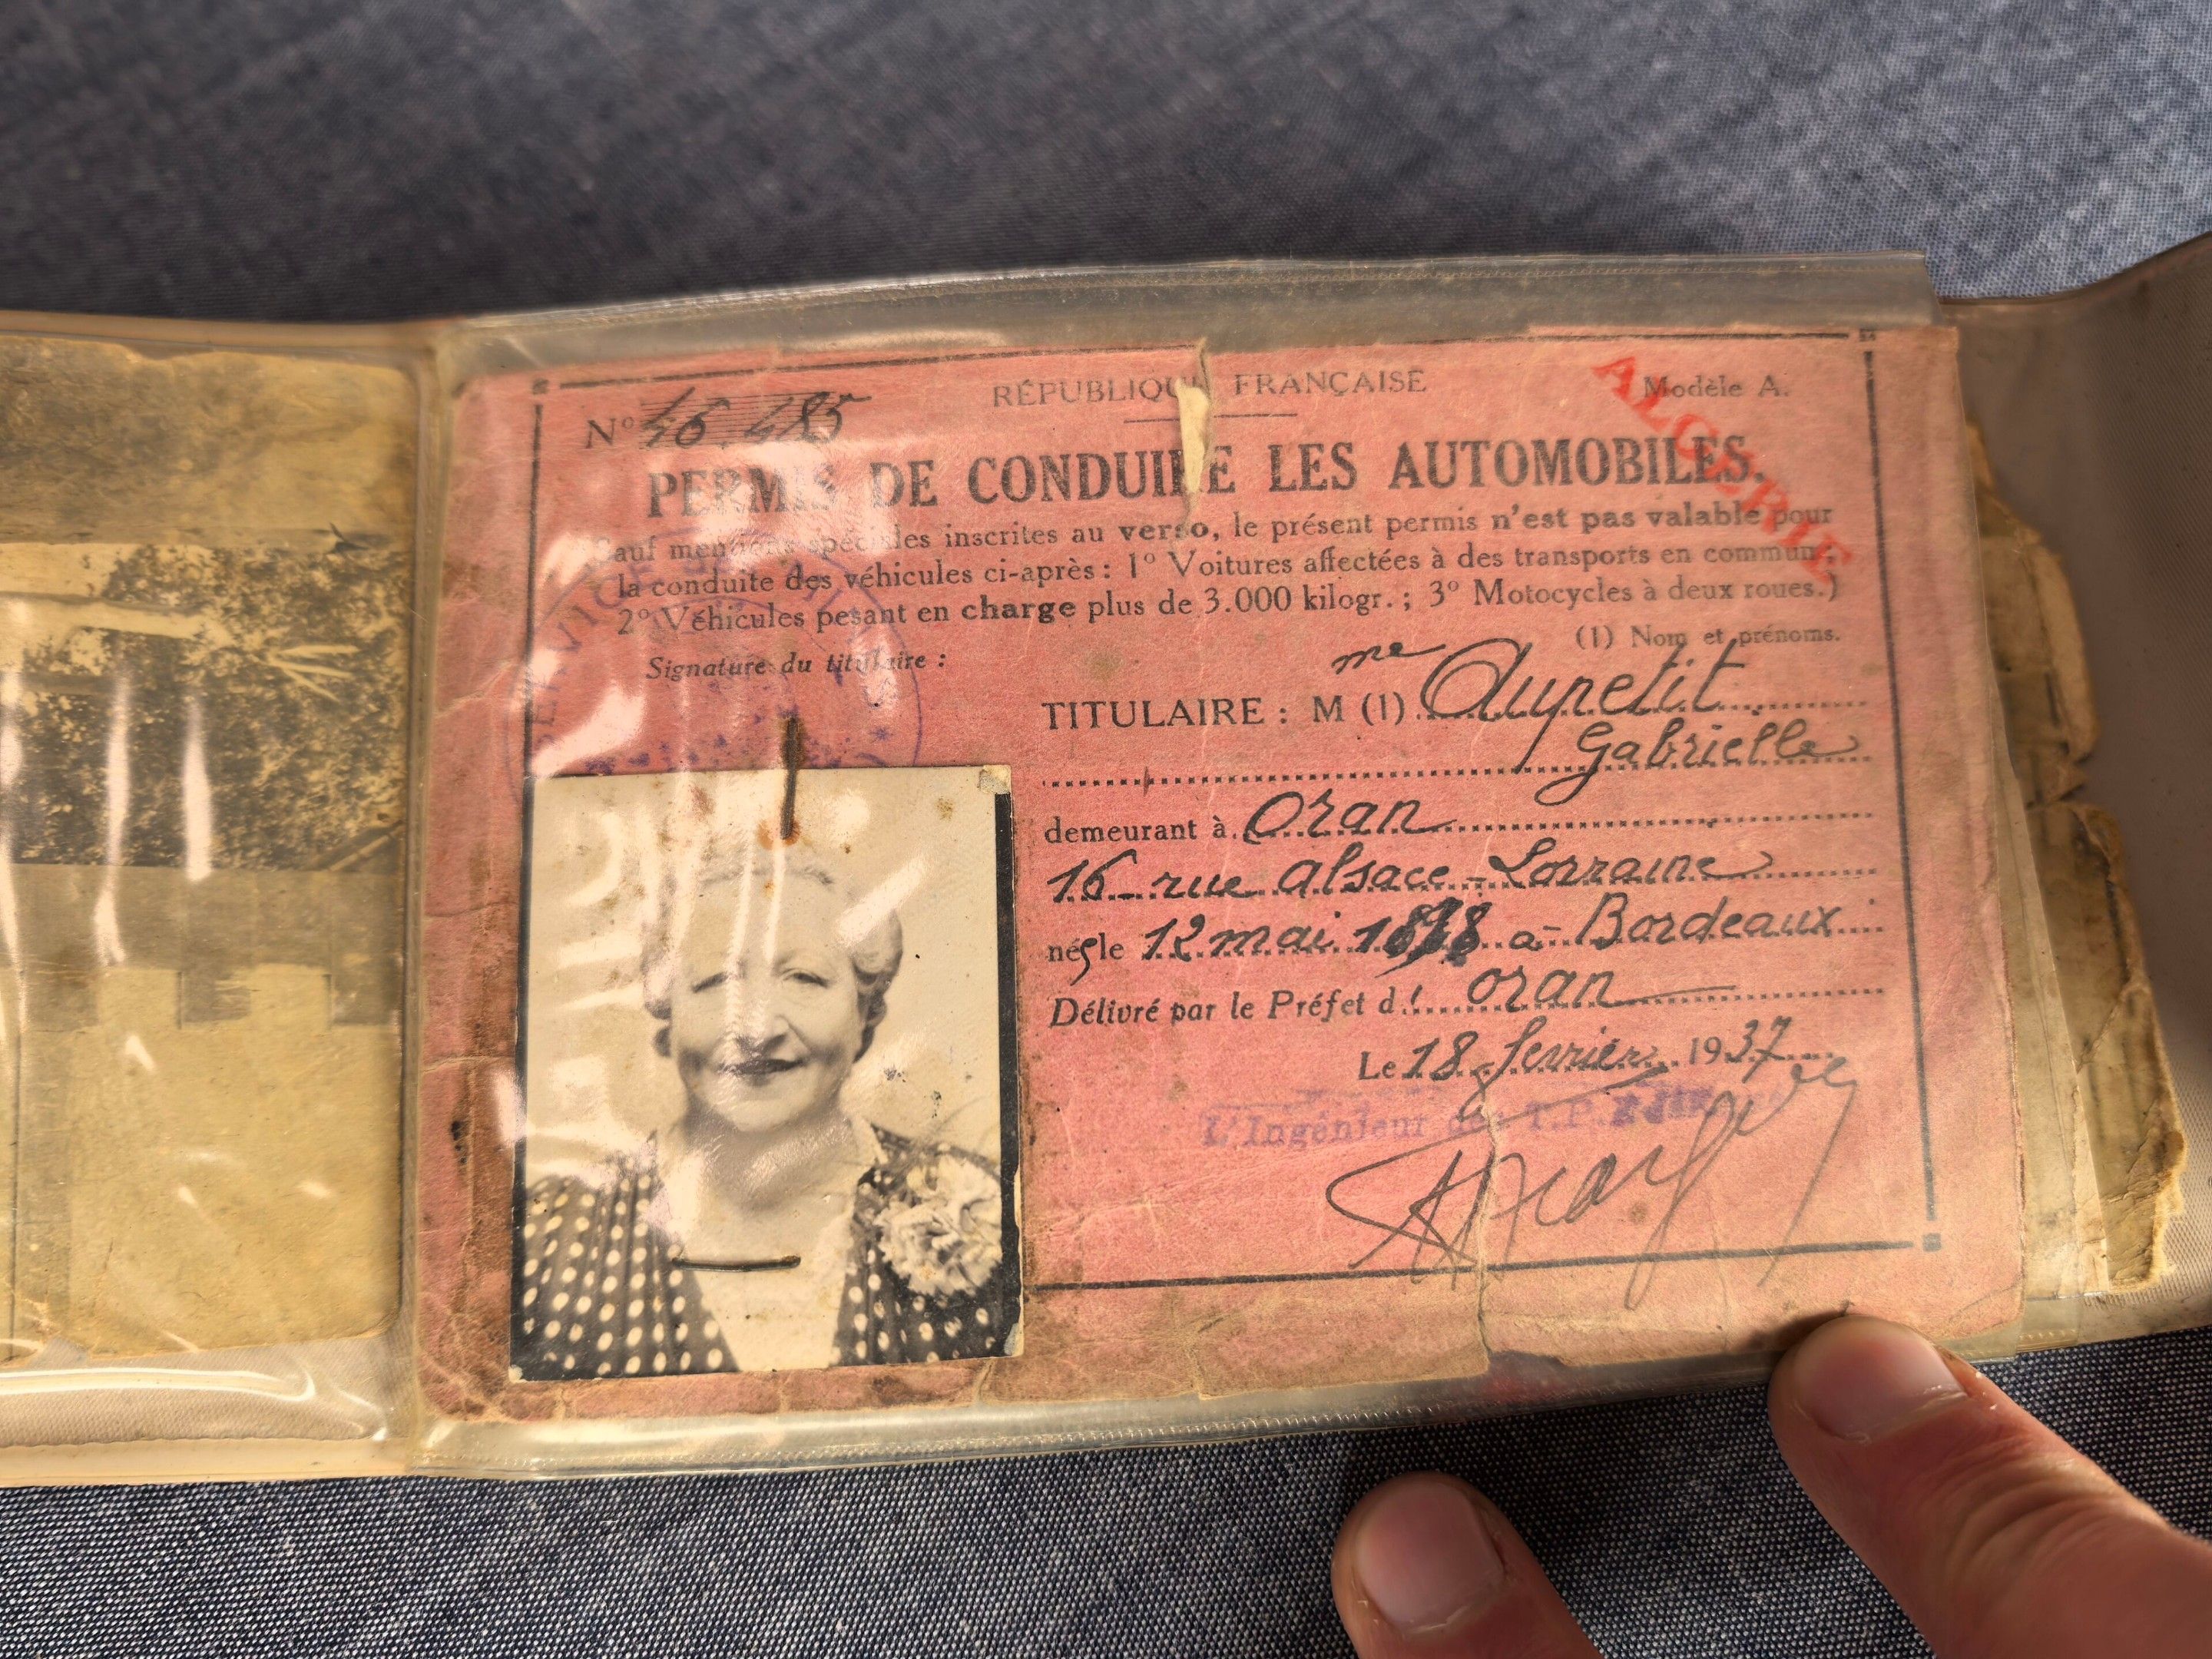 RÉPUBLIQUE FRANÇAISE
Modèle A.
ALGÉRIE
N° 46.485
PERMIS DE CONDUIRE LES AUTOMOBILES.
Sauf mentions spéciales inscrites au verso, le présent permis n'est pas valable pour
la conduite des véhicules ci-après : 1° Voitures affectées à des transports en commun ;
2° Véhicules pesant en charge plus de 3.000 kilogr. ; 3° Motocycles à deux roues.)
(1) Nom et prénoms.
Signature du titulaire :
SERVICE
TITULAIRE : M me (1) Aupetit
Gabrielle
demeurant à Oran
16 rue Alsace-Lorraine
née le 12 mai à Bordeaux
Délivré par le Préfet d' Oran
Le 18 fevrier 1937
L'Ingénieur des T.P.E.